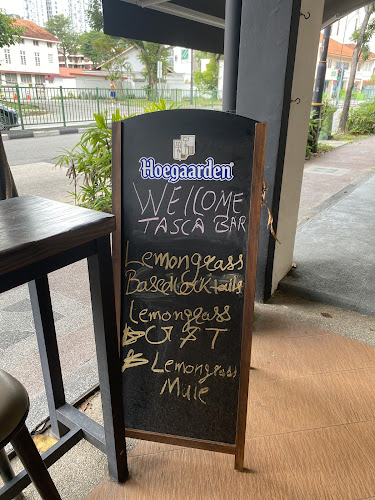 Hoegaarden
WELCOME
TASCA BAR
Lemongrass
Based Cocktails
Lemongrass
G&T
Lemongrass
Mule